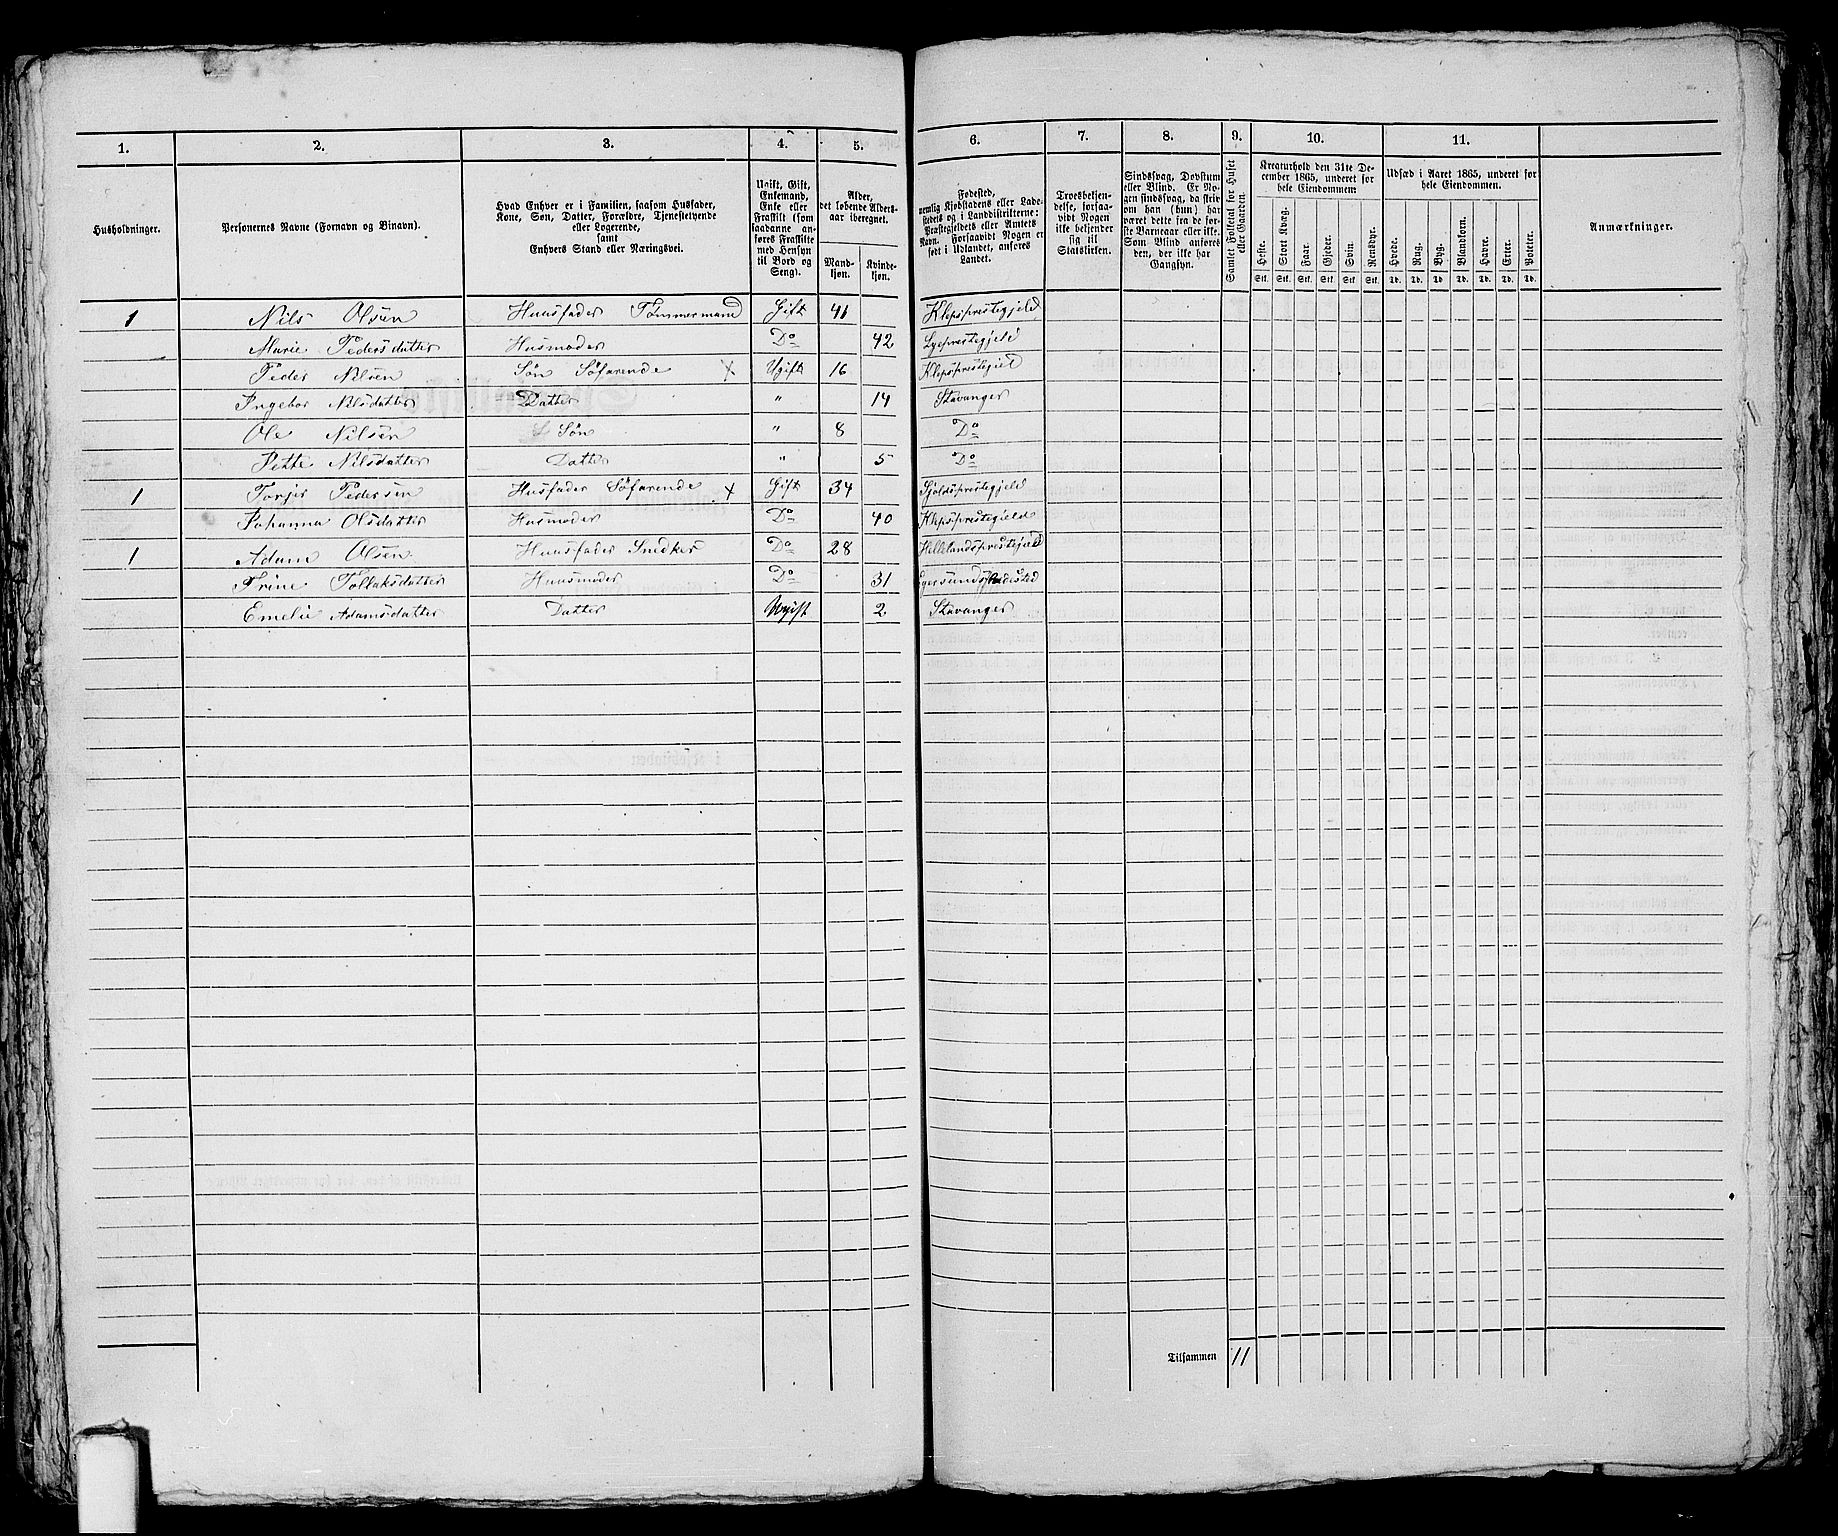 1. 2. 3. 4. 5. 6. 7. 8. 9. 10. 11.
Husholdninger.
Personernes Navne (Fornavn og Binavn).
Hvad Enhver er i Familien, saasom Husfader,
Kone, Søn, Datter, Forældre, Tjenestetyende
eller Logerende,
samt
Enhvers Stand eller Næringsvei.
Ugift, Gift,
Enkemand,
Enke eller
Fraskilt (som
saadanne an-
føres Fraskilte
med Hensyn
til Bord og
Seng).
Alder,
det løbende Alders-
aar iberegnet.
Mand-
kjøn.
Kvinde-
kjøn.
Fødested,
nemlig Kjøbstadens eller Lade-
stedets og i Landdistrikterne:
Præstegjeldets eller Amtets
Navn. Forsaavidt Nogen er
født i Udlandet, anføres
Landet.
Troesbekjen-
delse, forsaa-
vidt Nogen
ikke bekjender
sig til
Statskirken.
Sindssvag, Døvstum
eller Blind. Er No-
gen sindssvag, da skrives
om han (hun) har
været dette fra de før-
ste Barneaar eller ikke.
Som Blind anføres
den, der ikke har
Gangsyn.
Samlet Folketal for Huset
eller Gaarden.
Kreaturhold den 31te De-
cember 1865, underet for
hele Eiendommen
Heste. Stort Kvæg. Faar. Gjeder. Svin. Rensdyr.
Stk. Stk. Stk. Stk. Stk. Stk.
Udsæd i Aaret 1865, underet for
hele Eiendommen.
Hvede. Rug. Byg. Blandkorn. Havre. Erter. Poteter.
Td. Td. Td. Td. Td. Td. Td.
Anmærkninger.
1 Nils Olsen Huusfader Tømmermand Gift 41 Klepsprestegjeld
Marie Pedersdatter Husmoder Do 42 Lyeprestegjeld
Peder Nilsen Søn Søfarende X Ugift 16 Klepsprestegjeld
Ingebor Nilsdatter Datter " 14 Stavanger
Ole Nilsen Søn " 8 Do
Pette Nilsdatter Datter " 5 Do
1 Torjer Pedersen Husfader Søfarende X Gift 34 Sjoldsprestegjeld
Johanna Olsdatter Husmoder Do 40 Klepsprestegjeld
1 Adam Olsen Huusfader Snedker Do 28 Hellelandsprestegjeld
Trine Tollaksdatter Huusmoder Do 31 Egersunds Ladested
Emelie Adamsdatter Datter Ugift 2 Stavanger
Tilsammen 11